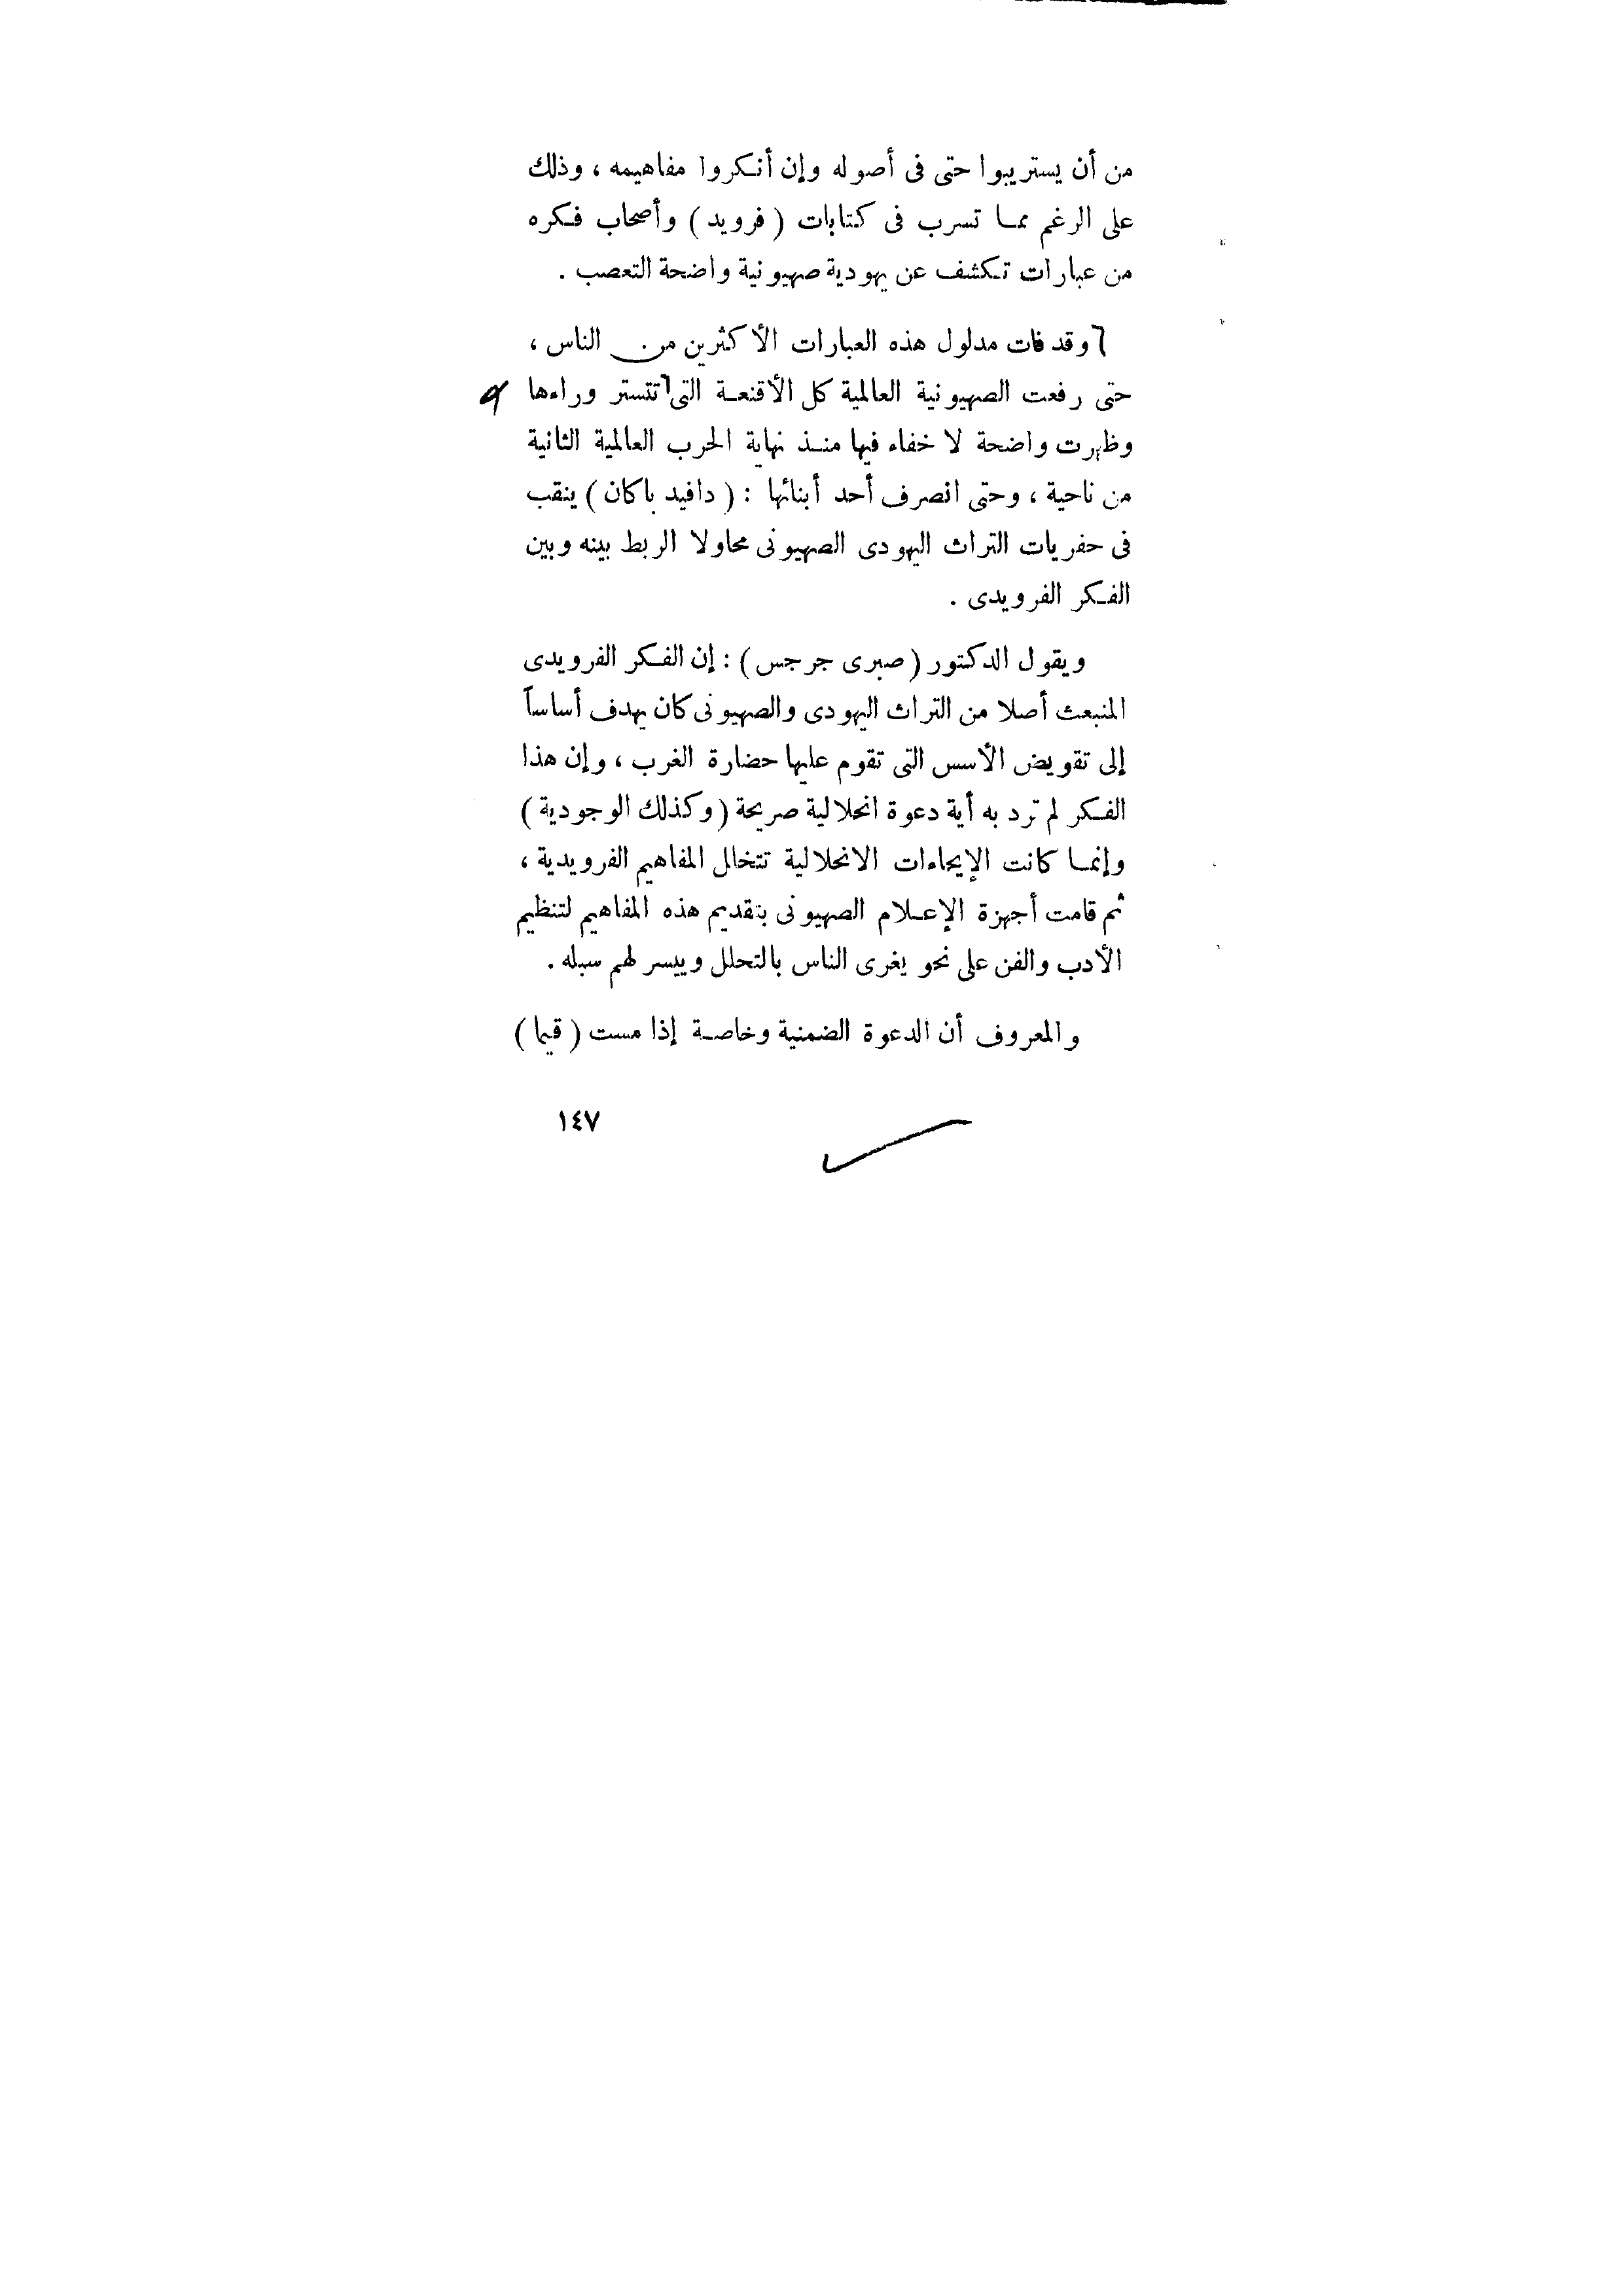 من أن يستريبوا حتى فى أصوله وإن أنكروا مفاهيمه ، وذلك
على الرغم مما تسرب فى كتابات ( فرويد ) وأصحاب فكره
من عبارات تكشف عن يهودية صهيونية واضحة التعصب .
وقد فات مدلول هذه العبارات الأكثرين من الناس ،
حتى رفعت الصهيونية العالمية كل الأقنعة التى تتستر وراءها
وظهرت واضحة لا خفاء فيها منذ نهاية الحرب العالمية الثانية
من ناحية ، وحتى انصرف أحد أبنائها : ( دافيد باكان ) ينقب
فى حفريات التراث اليهودى الصهيونى محاولا الربط بينه وبين
الفكر الفرويدى .
ويقول الدكتور ( صبرى جرجس ) : إن الفكر الفرويدى
المنبعث أصلا من التراث اليهودى والصهيونى كان يهدف أساساً
إلى تقويض الأسس التى تقوم عليها حضارة الغرب ، وإن هذا
الفكر لم ترد به أية دعوة انحلالية صريحة ( وكذلك الوجودية )
وإنما كانت الإيحاءات الانحلالية تتخال المفاهيم الفرويدية ،
ثم قامت أجهزة الإعلام الصهيونى بتقديم هذه المفاهيم لتنظيم
الأدب والفن على نحو يغرى الناس بالتحلل وييسر لهم سبله .
والمعروف أن الدعوة الضمنية وخاصة إذا مست ( قيما )
١٤٧